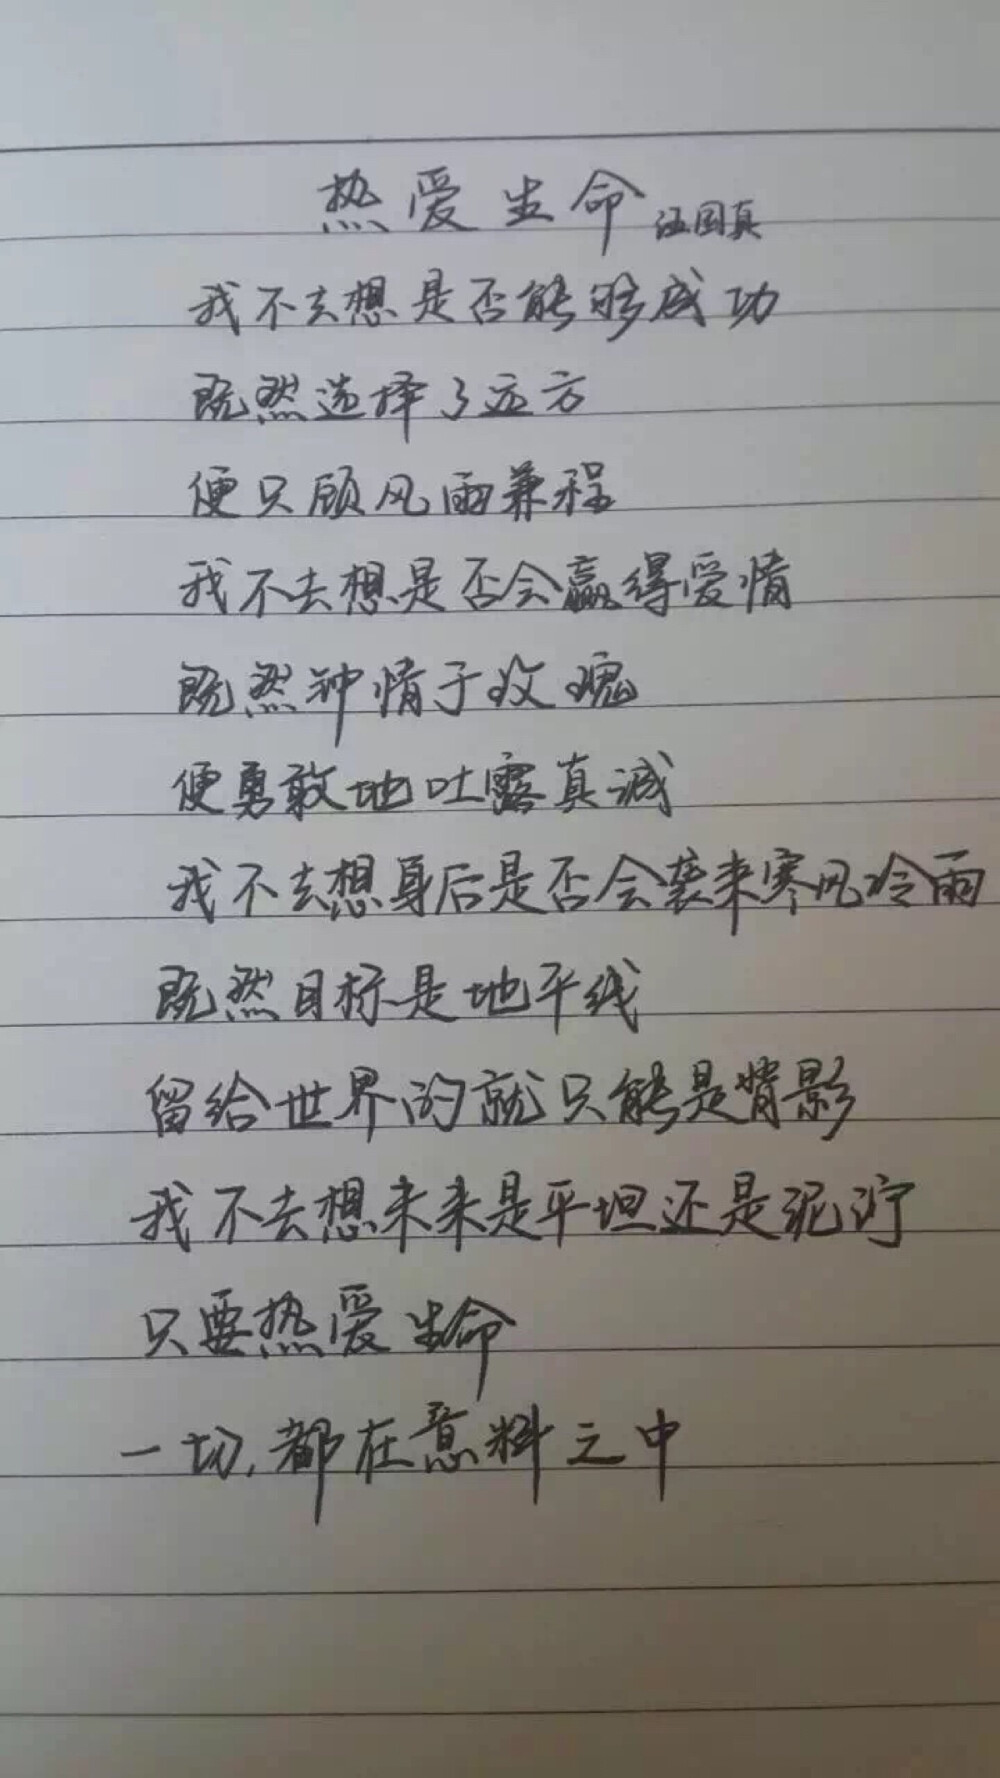 热爱生命 汪国真
我不去想是否能够成功
既然选择了远方
便只顾风雨兼程
我不去想是否会赢得爱情
既然钟情于玫瑰
便勇敢地吐露真诚
我不去想身后是否会袭来寒风冷雨
既然目标是地平线
留给世界的就只能是背影
我不去想未来是平坦还是泥泞
只要热爱生命
一切,都在意料之中